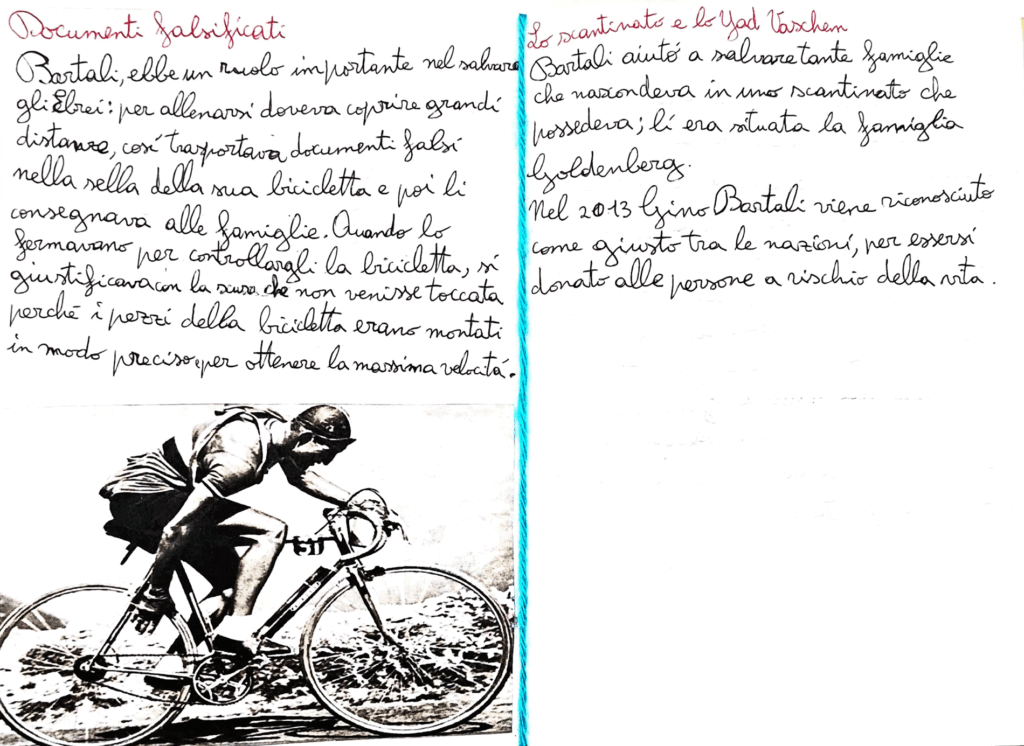 Documenti falsificati
Bartali, ebbe un ruolo importante nel salvare
gli Ebrei: per allenarsi doveva coprire grandi
distanze, cosí trasportava documenti falsi
nella sella della sua bicicletta e poi li
consegnava alle famiglie. Quando lo
fermavano per controllargli la bicicletta, si
giustificava con la scusa che non venisse toccata
perché i pezzi della bicicletta erano montati
in modo preciso, per ottenere la massima velocitá.
Lo scantinato e lo Yad Vaschem
Bartali aiutó a salvare tante famiglie
che nascondeva in uno scantinato che
possedeva; lí era situata la famiglia
Goldenberg.
Nel 2013 Gino Bartali viene riconosciuto
come giusto tra le nazioni, per essersi
donato alle persone a rischio della vita.